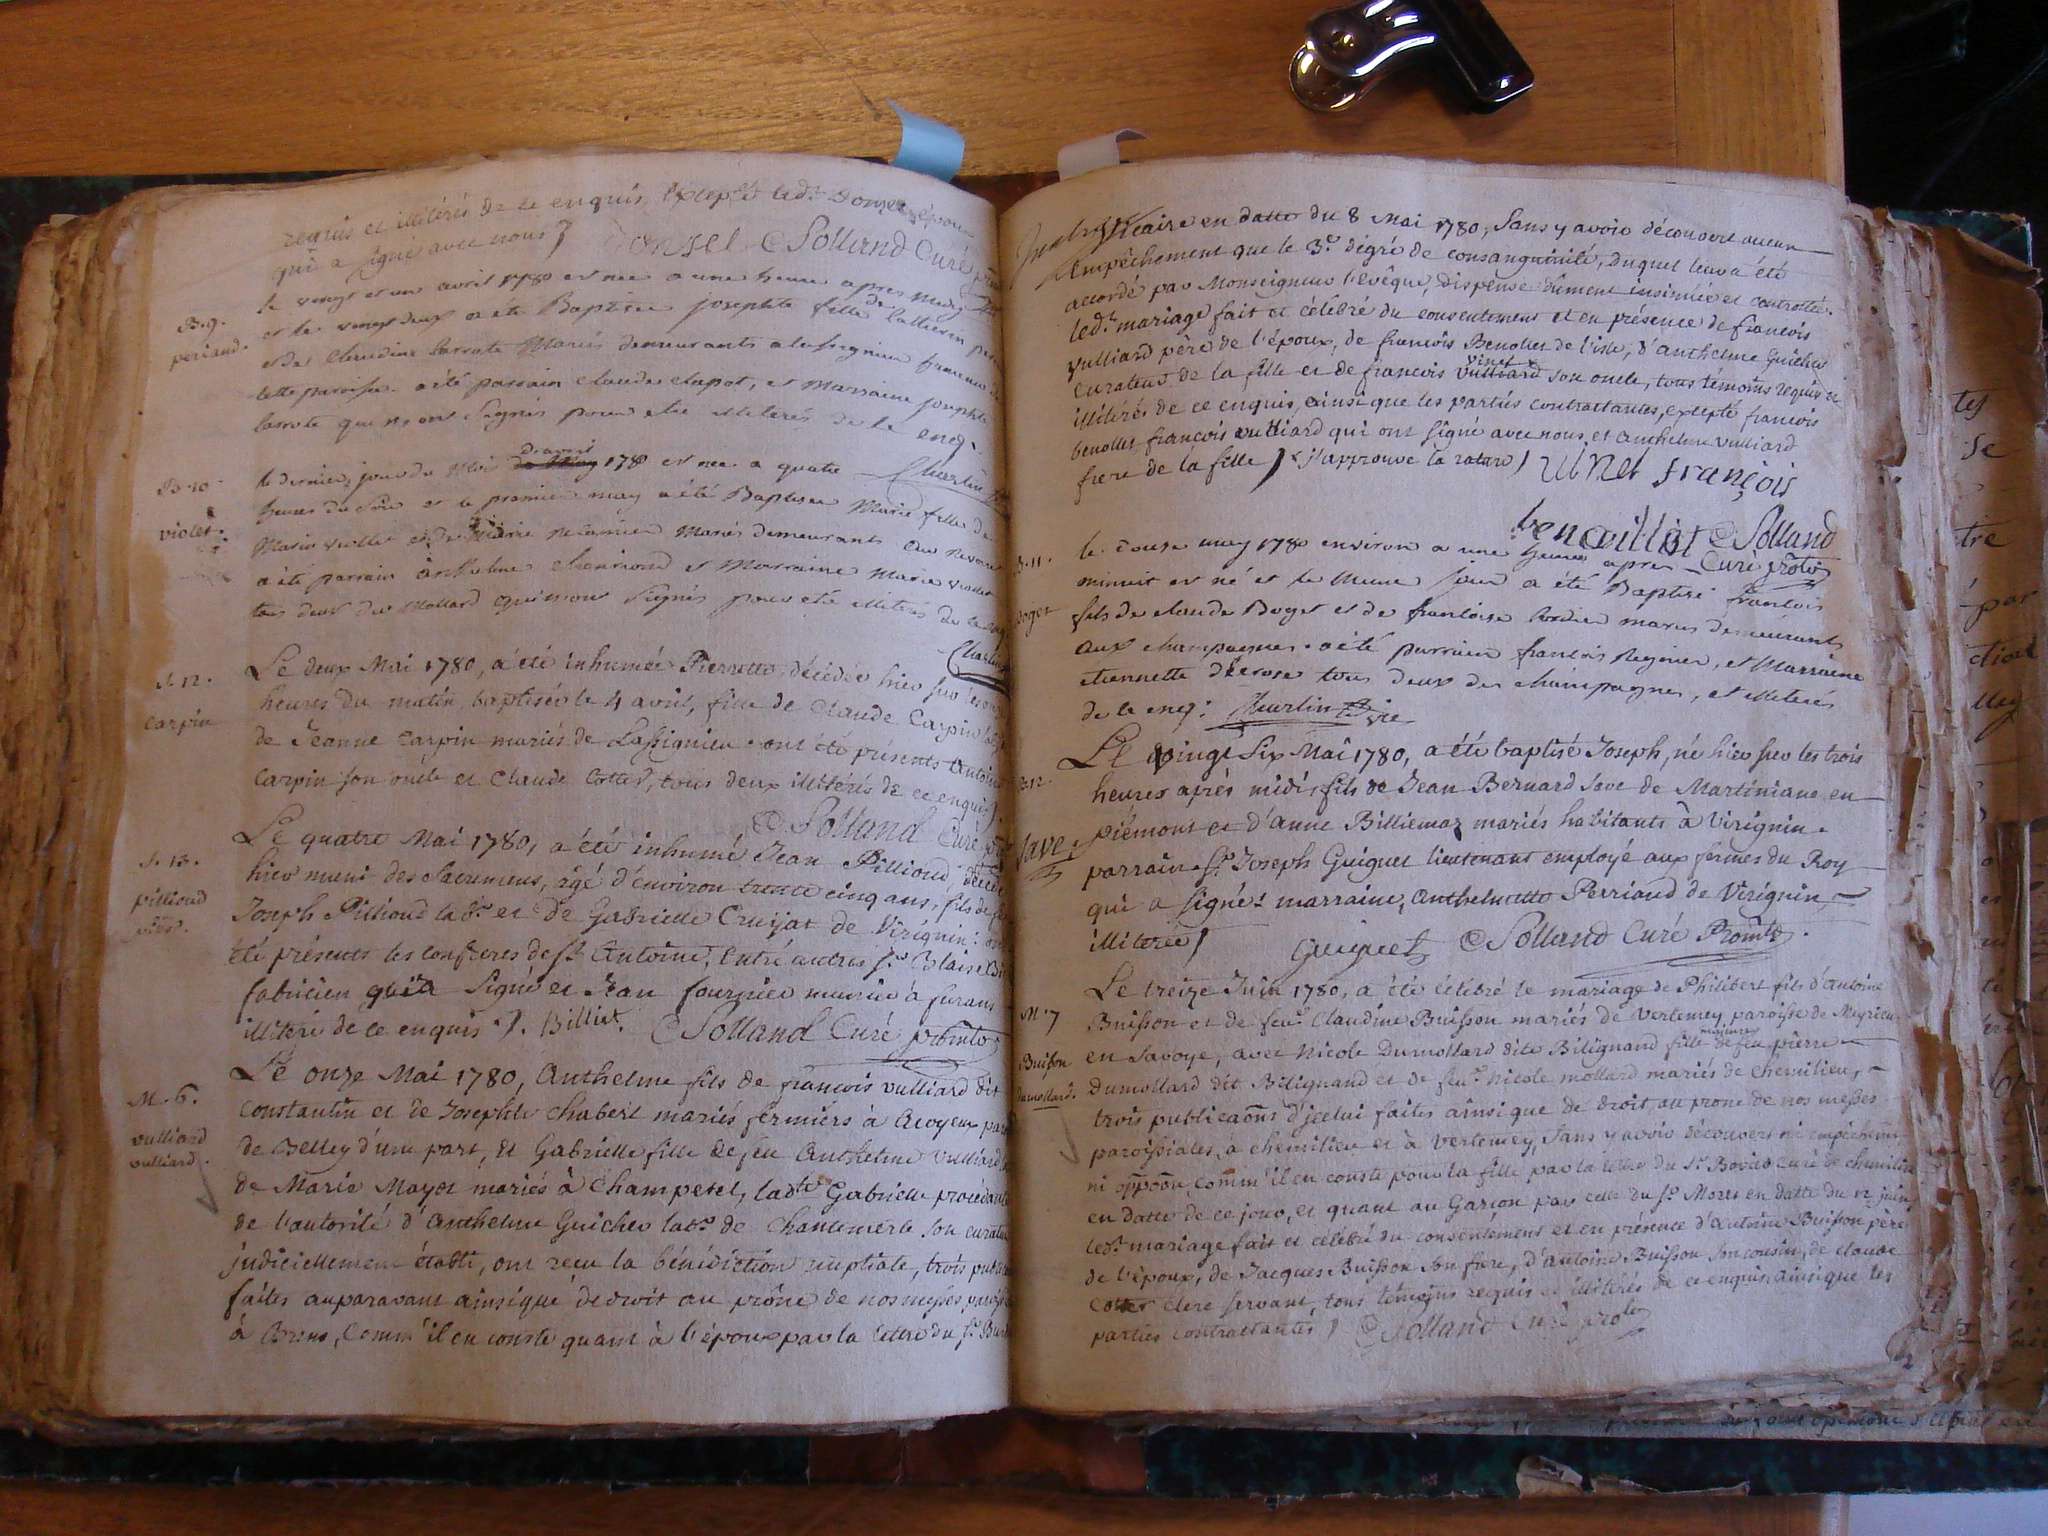 requis et illitérés de ce enquis, excepté led.t Donzel époux
qui a signé avec nous
Donzel C Solland Curé
B. 9.
periaud.
le vingt et un avril 1780 est nee a une heure apres midy
et le vingt deux a été Baptisée josephte fille de
et de Claudine larrote Mariés demeurants a lassignieu hameau de
cette paroisse. a été parrain claude clapot, et Marraine josephte
larrote qui n'ont Signés pour etre illiterés de ce enq.
B. 10
violet.
le dernier jour du Mois d'avril 1780 est nee a quatre
heures du Soir et le premier may a été Baptisée Marie fille de
Marin violet et de Marie Mariés demeurants au
a été parrain anthelme et Marraine Marie violet
tous deux du Mollard qui n'ont Signés pour etre illiterés de ce enq
S. 12.
Carpin
Le deux Mai 1780, a été inhumée Pierrette, décédée hier sur les onze
heures du matin, baptisée le 4 avril, fille de Claude Carpin et
de Jeanne Carpin mariés de Lassignieu. ont été présents Antoine
Carpin son oncle et Claude Cottet, tous deux illitérés de ce enquis.
C Solland Curé
S. 13.
pillioud
Le quatre Mai 1780, a été inhumé Jean Pillioud, décédé
hier muni des Sacremens, âgé d'environ trente cinq ans, fils de feu
Joseph Pillioud lab.r et de Gabrielle Cruijat de Virignin: ont
été présents les confreres de S.t Antoine, entré autres S.r Blaise
fabricien qui a Signé et Jean fournier à furans
illiteré de ce enquis. Billiet. C Solland Curé
M. 6.
vulliard
vulliard.
Le onze Mai 1780, Anthelme fils de françois vulliard dit
Constantin et de Josephte Chabert mariés fermiers à Coyeux
de Belley d'une part, et Gabrielle fille de feu Anthelme vulliard
de Marie Mayot mariés à Champetel, lad.te Gabrielle procédante
de l'autorité d'Anthelme Guicher lab.r de Chantemerle son curateur
judiciellement établi, ont reçu la bénédiction nuptiale, trois
faites auparavant ainsi que de droit au prône de nos messes
à Brens, comm'il en conste quant à l'époux par la lettre du S.r
vicaire en datte du 8 Mai 1780, Sans y avoir découvert aucun
Empêchement que le 3.e dégré de consanguinité, duquel leur a été
accordé par Monseigneur l'Evêque, dispense dûment insinuée et controllée.
led.t mariage fait et célébré du consentement et en présence de françois
Vulliard père de l'époux, de françois Benollet de l'isle, d'anthelme Guicher
Curateur de la fille et de francois vinet vulliard son oncle, tous témoins requis et
illitérés de ce enquis, ainsi que les parties contrattantes, excepté francois
benollet, francois vulliard qui ont signé avec nous, et anthelme vulliard
frere de la fille j'approuve la rature vinet françois
benoillot C Solland
Curé
B. 11.
Boget
le douse may 1780 environ a une heure apres
minuit est né et le meme jour a été Baptisé francois
fils de claude Boget et de francoise mariés demeurants
aux champagnes. a été parrain francois Reginer, et Marraine
etiennette tous deux des champagnes, et illiterés
de ce enq:
B. 12.
Save.
Le vingt six Mai 1780, a été baptisé Joseph, né hier sur les trois
heures après midi, fils de Jean Bernard Save de Martiniane en
piémont et d'Anne Billiemaz mariés habitants à Virignin.
parrain S.r Joseph Guiguet lieutenant employé aux fermes du Roy
qui a signé: marraine, Anthelmette Perriaud de Virignin,
illiterée
Guiguet C Solland Curé
M. 7
Buisson
Dumollard.
Le treize Juin 1780, a été célébré le mariage de Philibert fils d'Antoine
Buisson et de feu Claudine Buisson mariés de Vertemey paroisse de
en Savoye, avec Nicole Dumollard dite Bilignand fille majeure de feu pierre
Dumollard dit Bilignand et de feu Nicole mollard mariés de Chemilieu,
trois publicaõns d'icelui faites ainsi que de droit au prone de nos messes
paroissiales, à chemilieu et à Vertemey, Sans y avoir découvert ni empêchem.t
ni oppoõn, comm'il en conste pour la fille par la lettre du S.r Curé de chemilieu
en datte de ce jour, et quant au Garçon par celle du S.r Moret en datte du 12 juin
led.t mariage fait et célébré du consentement et en présence d'Antoine Buisson père
de l'époux, de Jacques Buisson son frère, d'Antoine Buisson son cousin, de claude
Cottet clerc servant, tous témoins requis et illitérés de ce enquis ainsi que les
parties contrattantes C Solland Curé